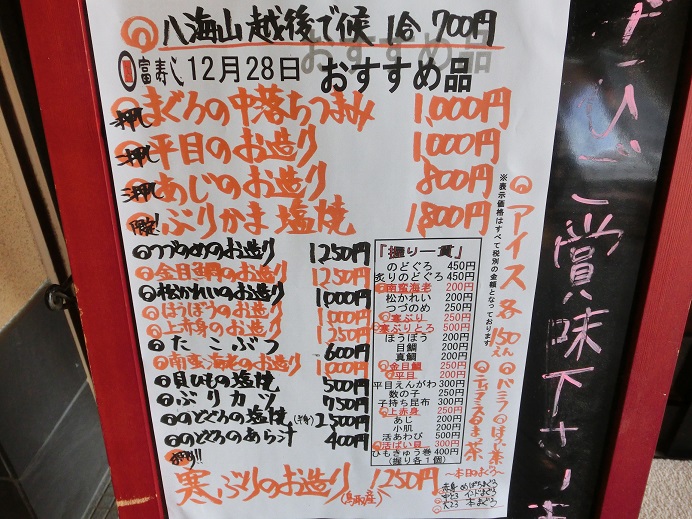 八海山 越後で候 1合 700円
富寿し 12月28日 おすすめ品
おすすめ品
押し まぐろの中落ちつまみ 1,000円
押し 平目のお造り 1000円
押し あじのお造り 800円
限定! ぶりかま塩焼 1,800円
つづのめのお造り 1250円
金目鯛のお造り 1250円
松かれいのお造り 1000円
ほうぼうのお造り 1000円
上赤身のお造り 1250円
たこぶつ 600円
南蛮海老のお造り 1000円
貝ひもの塩焼 500円
ぶりカツ 750円
のどぐろの塩焼(半身) 2500円
のどぐろのあら汁 400円
寒ぶりのお造り(鳥取産) 1250円
「握り一貫」
のどぐろ 450円
炙りのどぐろ 450円
南蛮海老 200円
松かれい 200円
つづのめ 200円
寒ぶり 250円
寒ぶりとろ 500円
ほうぼう 200円
目鯛 200円
真鯛 200円
金目鯛 250円
平目 200円
平目えんがわ 300円
数の子 250円
子持ち昆布 300円
上赤身 250円
あじ 200円
小肌 200円
活あわび 500円
活ばい貝 300円
ひもきゅう巻 400円
(握り各1個)
※表示価格はすべて税別の金額となっております
アイス各150えん
バニラ
ほうじ茶
ティラミス
本日のまぐろ
赤身 めばちまぐろ
中とろ インドまぐろ
大とろ 本まぐろ
ご賞味下さいま